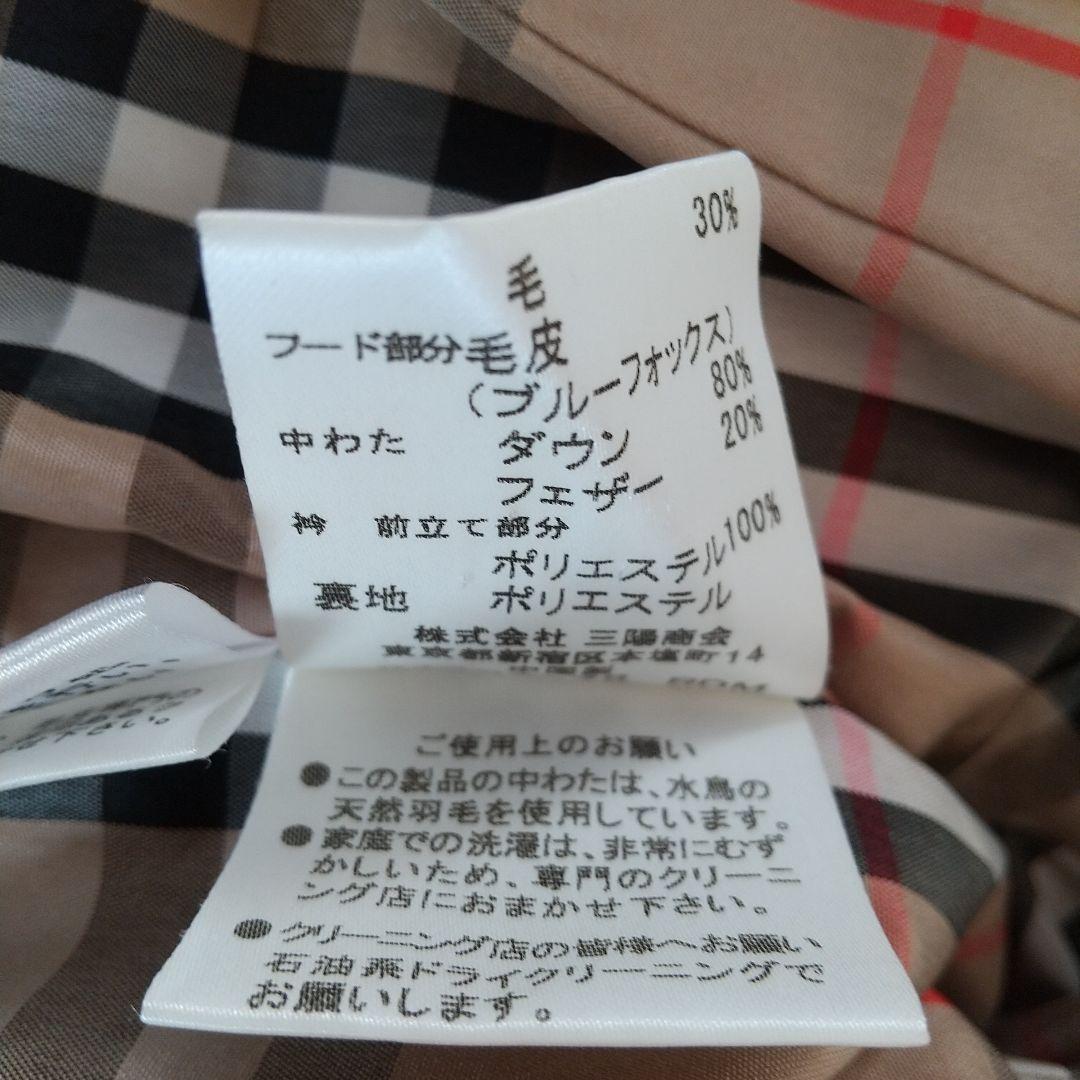 毛 30%
フード部分毛皮
(ブルーフォックス)
中わた ダウン 80%
フェザー 20%
前立て部分
ポリエステル100%
裏地 ポリエステル
株式会社 三陽商会
東京都新宿区本塩町14
ご使用上のお願い
●この製品の中わたは、水鳥の
天然羽毛を使用しています。
●家庭での洗濯は、非常にむず
かしいため、専門のクリーニ
ング店におまかせ下さい。
●クリーニング店の皆様へお願い
石油系ドライクリーニングで
お願いします。